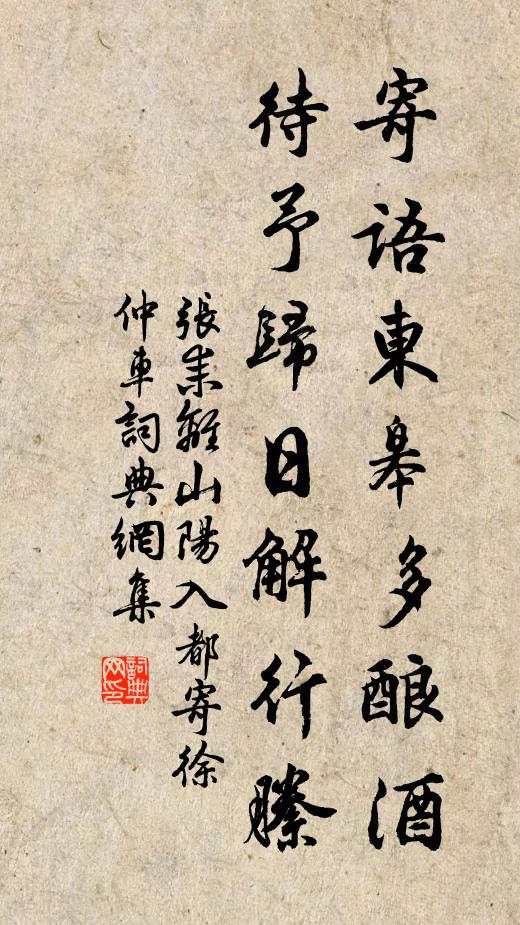 寄語東皋多酿酒
待予歸日解行縢
張耒離山陽入都寄徐
仲車詞典網集
詞典网印